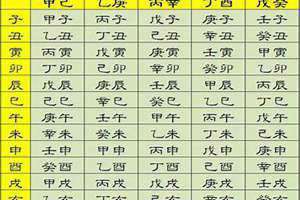 甲己 乙庚 丙辛 丁酉 戊癸
子 甲子 丙子 戊子 庚子 壬子
丑 乙丑 丁丑 己丑 辛丑 癸丑
寅 丙寅 戊寅 庚寅 壬寅 甲寅
卯 丁卯 己卯 辛卯 癸卯 乙卯
辰 戊辰 庚辰 壬辰 甲辰 丙辰
巳 己巳 辛巳 癸巳 乙巳 丁巳
午 庚午 壬午 甲午 丙午 戊午
未 辛未 癸未 乙未 丁未 己未
申 壬申 甲申 丙申 戊申 庚申
酉 癸酉 乙酉 丁酉 己酉 辛酉
戌 甲戌 丙戌 戊戌 庚戌 壬戌